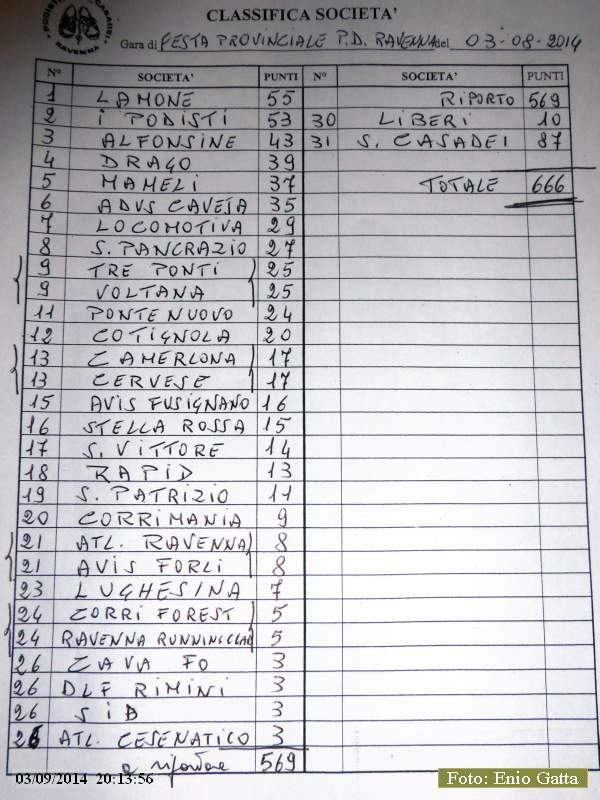 PODISTI
RAVENNA
CLASSIFICA SOCIETA'
Gara di FESTA PROVINCIALE P.D. RAVENNA del 03-08-2014
N° SOCIETA' PUNTI N° SOCIETA' PUNTI
1 LAMONE 55 RIPORTO 569
2 I PODISTI 53 30 LIBERI 10
3 ALFONSINE 43 31 S. CASADEI 87
4 DRAGO 39
5 MAMELI 37 TOTALE 666
6 ADVS CAVEJA 35
7 LOCOMOTIVA 29
8 S. PANCRAZIO 27
9 TRE PONTI 25
9 VOLTANA 25
11 PONTENUOVO 24
12 COTIGNOLA 20
13 CAMERLONA 17
13 CERVESE 17
15 AVIS FUSIGNANO 16
16 STELLA ROSSA 15
17 S. VITTORE 14
18 RAPID 13
19 S. PATRIZIO 11
20 CORRIMANIA 9
21 ATL. RAVENNA 8
21 AVIS FORLI 8
23 LUGHESINA 7
24 CORRI FOREST 5
24 RAVENNA RUNNING CLUB 5
26 CAVA FO 3
26 DLF RIMINI 3
26 SIB 3
26 ATL. CESENATICO 3
a riportare 569
03/09/2014 20:13:56
Foto: Enio Gatta